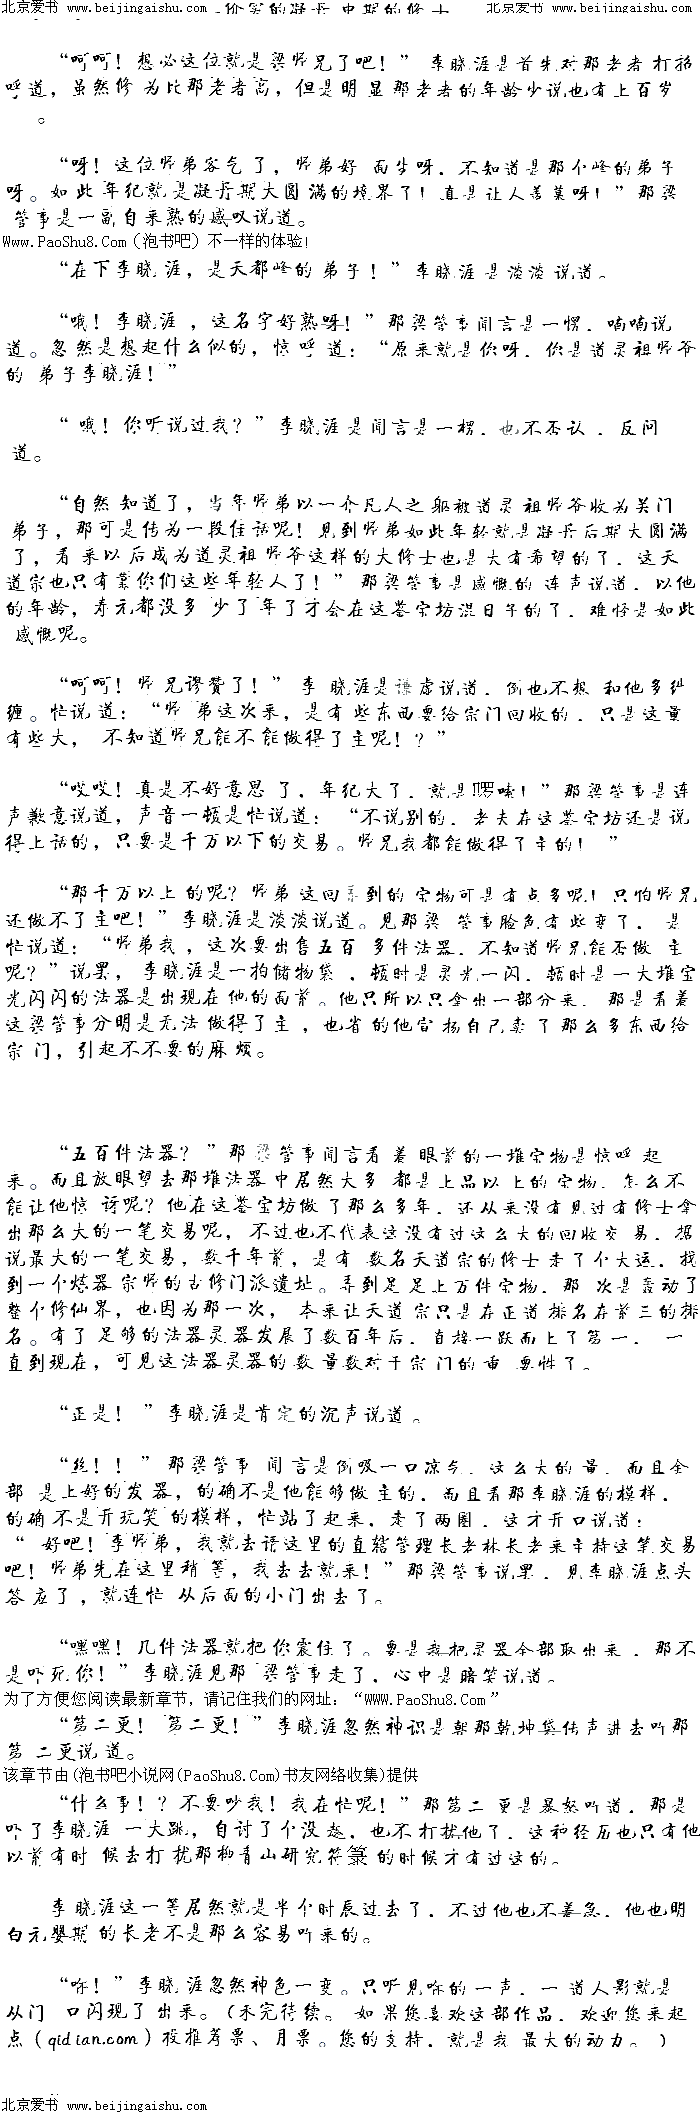 北京爱书 www.beijingaishu.com 北京爱书 www.beijingaishu.com
“呵呵！想必这位就是梁师兄了吧！” 李晓涯是首先对那老者打招
呼道，虽然修为比那老者高，但是明显那老者的年龄少说也有上百岁
。
“呀！这位师弟客气了，师弟好面生呀，不知道是那个峰的弟子
呀。如此年纪就是凝丹期大圆满的境界了！真是让人羡慕呀！”那梁
管事是一副自来熟的感叹说道。
Www.PaoShu8.Com（泡书吧）不一样的体验!
“在下李晓涯，是天都峰的弟子！”李晓涯是淡淡说道。
“哦！李晓涯，这名字好熟呀！”那梁管事闻言是一愣，喃喃说
道。忽然是想起什么似的，惊呼道：“原来就是你呀，你是道灵祖师爷
的弟子李晓涯！”
“哦！你听说过我？”李晓涯是闻言是一楞，也不否认，反问
道。
“自然知道了，当年师弟以一介凡人之躯被道灵祖师爷收为关门
弟子，那可是传为一段佳话呢！见到师弟如此年轻就是凝丹后期大圆满
了，看来以后成为道灵祖师爷这样的大修士也是大有希望的了，这天
道宗也只有靠你们这些年轻人了！”那梁管事是感慨的连声说道，以他
的年龄，寿元都没多少了年了才会在这鉴宝坊混日子的了，难怪是如此
感慨呢。
“呵呵！师兄谬赞了！”李晓涯是谦虚说道，倒也不想和他多纠
缠。忙说道：“师弟这次来，是有些东西要给宗门回收的，只是这量
有些大，不知道师兄能不能做得了主呢！？”
“哎哎！真是不好意思了，年纪大了，就是啰嗦！”那梁管事是连
声歉意说道，声音一顿是忙说道：“不说别的，老夫在这鉴宝坊还是说
得上话的，只要是千万以下的交易。师兄我都能做得了主的！”
“那千万以上的呢？师弟这回弄到的宝物可是有点多呢！只怕师兄
还做不了主吧！”李晓涯是淡淡说道。见那梁管事脸色有些变了，是
忙说道：“师弟我，这次要出售五百多件法器，不知道师兄能否做主
呢？”说罢，李晓涯是一拍储物袋，顿时是灵光一闪，顿时是一大堆宝
光闪闪的法器是出现在他的面前。他只所以只拿出一部分来，那是看着
这梁管事分明是无法做得了主，也省的他宣扬自己卖了那么多东西给
宗门，引起不不要的麻烦。
“五百件法器？”那梁管事闻言看着眼前的一堆宝物是惊呼起
来。而且放眼望去那堆法器中居然大多都是上品以上的宝物，怎么不
能让他惊讶呢？他在这鉴宝坊做了那么多年，还从来没有见过有修士拿
出那么大的一笔交易呢，不过也不代表这没有过这么大的回收交易，据
说最大的一笔交易，数千年前，是有数名天道宗的修士走了个大运，找
到一个炼器宗师的古修门派遗址。弄到足足上万件宝物，那次是轰动了
整个修仙界，也因为那一次，本来让天道宗只是在正道排名在前三的排
名。有了足够的法器灵器发展了数百年后，直接一跃而上了第一，一
直到现在，可见这法器灵器的数量数对于宗门的重要性了。
“正是！”李晓涯是肯定的沉声说道。
“丝！！”那梁管事闻言是倒吸一口凉气，这么大的量，而且全
部是上好的发器，的确不是他能够做主的，而且看那李晓涯的模样，
的确不是开玩笑的模样，忙站了起来，走了两圈，这才开口说道：
“好吧！李师弟，我就去请这里的直辖管理长老林长老来主持这笔交易
吧！师弟先在这里稍等，我去去就来！”那梁管事说罢，见李晓涯点头
答应了，就连忙从后面的小门出去了。
“嘿嘿！几件法器就把你震住了。要是我把灵器全部取出来，那不
是吓死你！”李晓涯见那梁管事走了，心中是暗笑说道。
为了方便您阅读最新章节，请记住我们的网址：“WWW.PaoShu8.Com”
“第二更！第二更！”李晓涯忽然神识是朝那乾坤袋传声进去听那
第二更说道。
该章节由(泡书吧小说网(PaoShu8.Com)书友网络收集)提供
“什么事！？不要吵我！我在忙呢！”那第二更是暴怒听道，那是
吓了李晓涯一大跳，自讨了个没趣，也不打扰他了，这种经历也只有他
以前有时候去打扰那柳青山研究符箓的时候才有过这的。
李晓涯这一等居然就是半个时辰过去了，不过他也不着急，他也明
白元婴期的长老不是那么容易听来的。
“咻！”李晓涯忽然神色一变。只听见咻的一声，一道人影就是
从门口闪现了出来。（未完待续。如果您喜欢这部作品，欢迎您来起
点（qidian.com）投推荐票、月票。您的支持，就是我最大的动力。）
北京爱书 www.beijingaishu.com